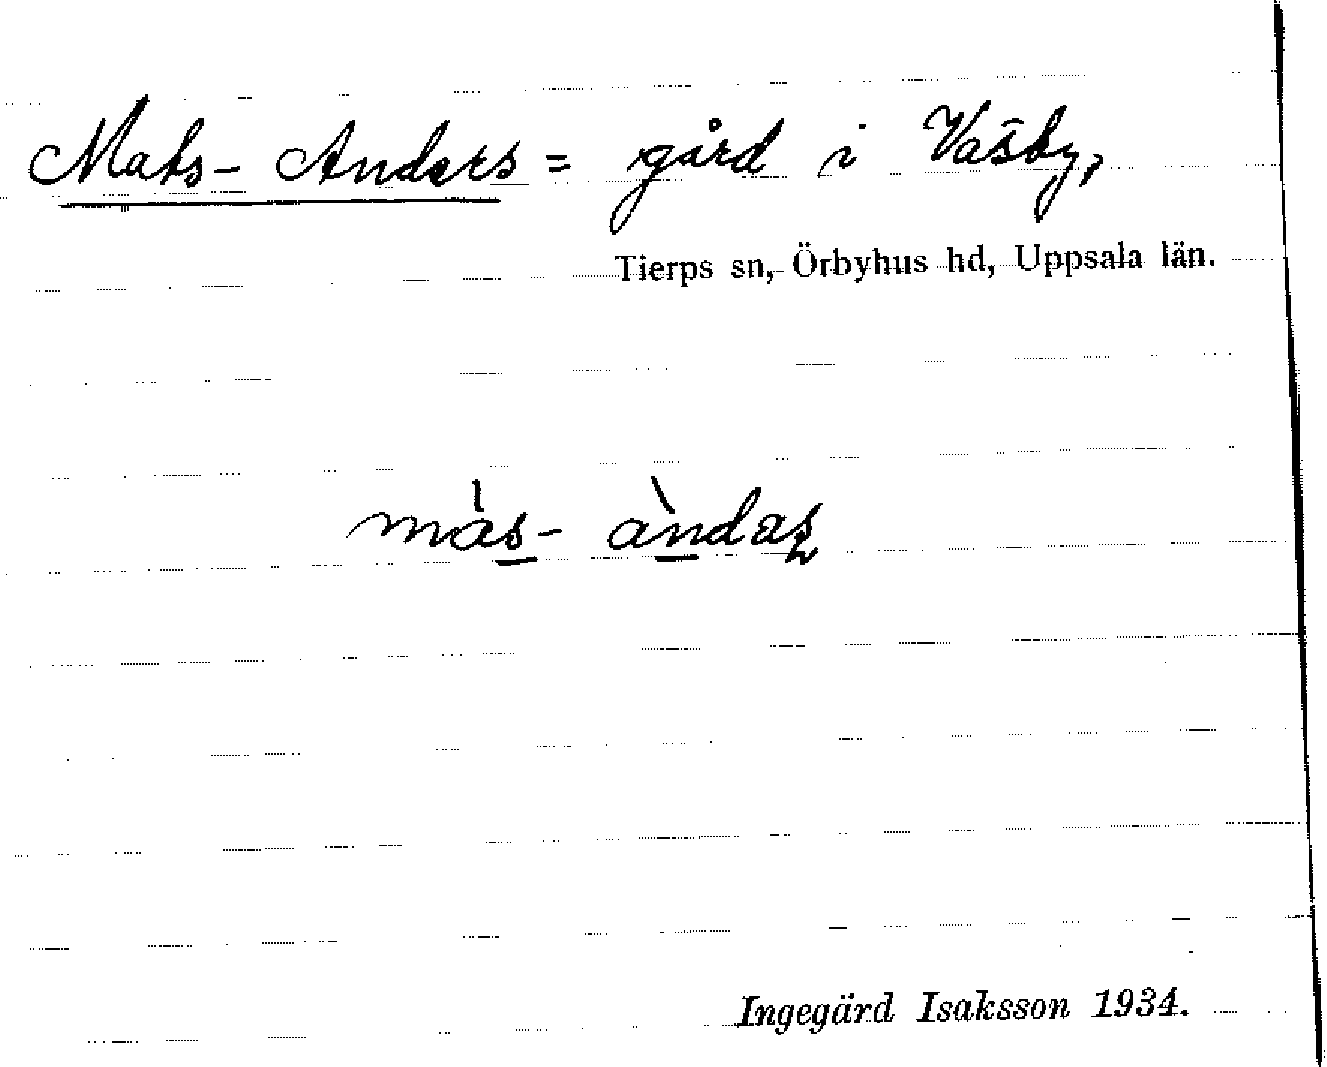 Mats-Anders = gård i Vasby,
Tierps sn, Örbyhus hd, Uppsala län.
màs-àndaʂ
Ingegärd Isaksson 1934.